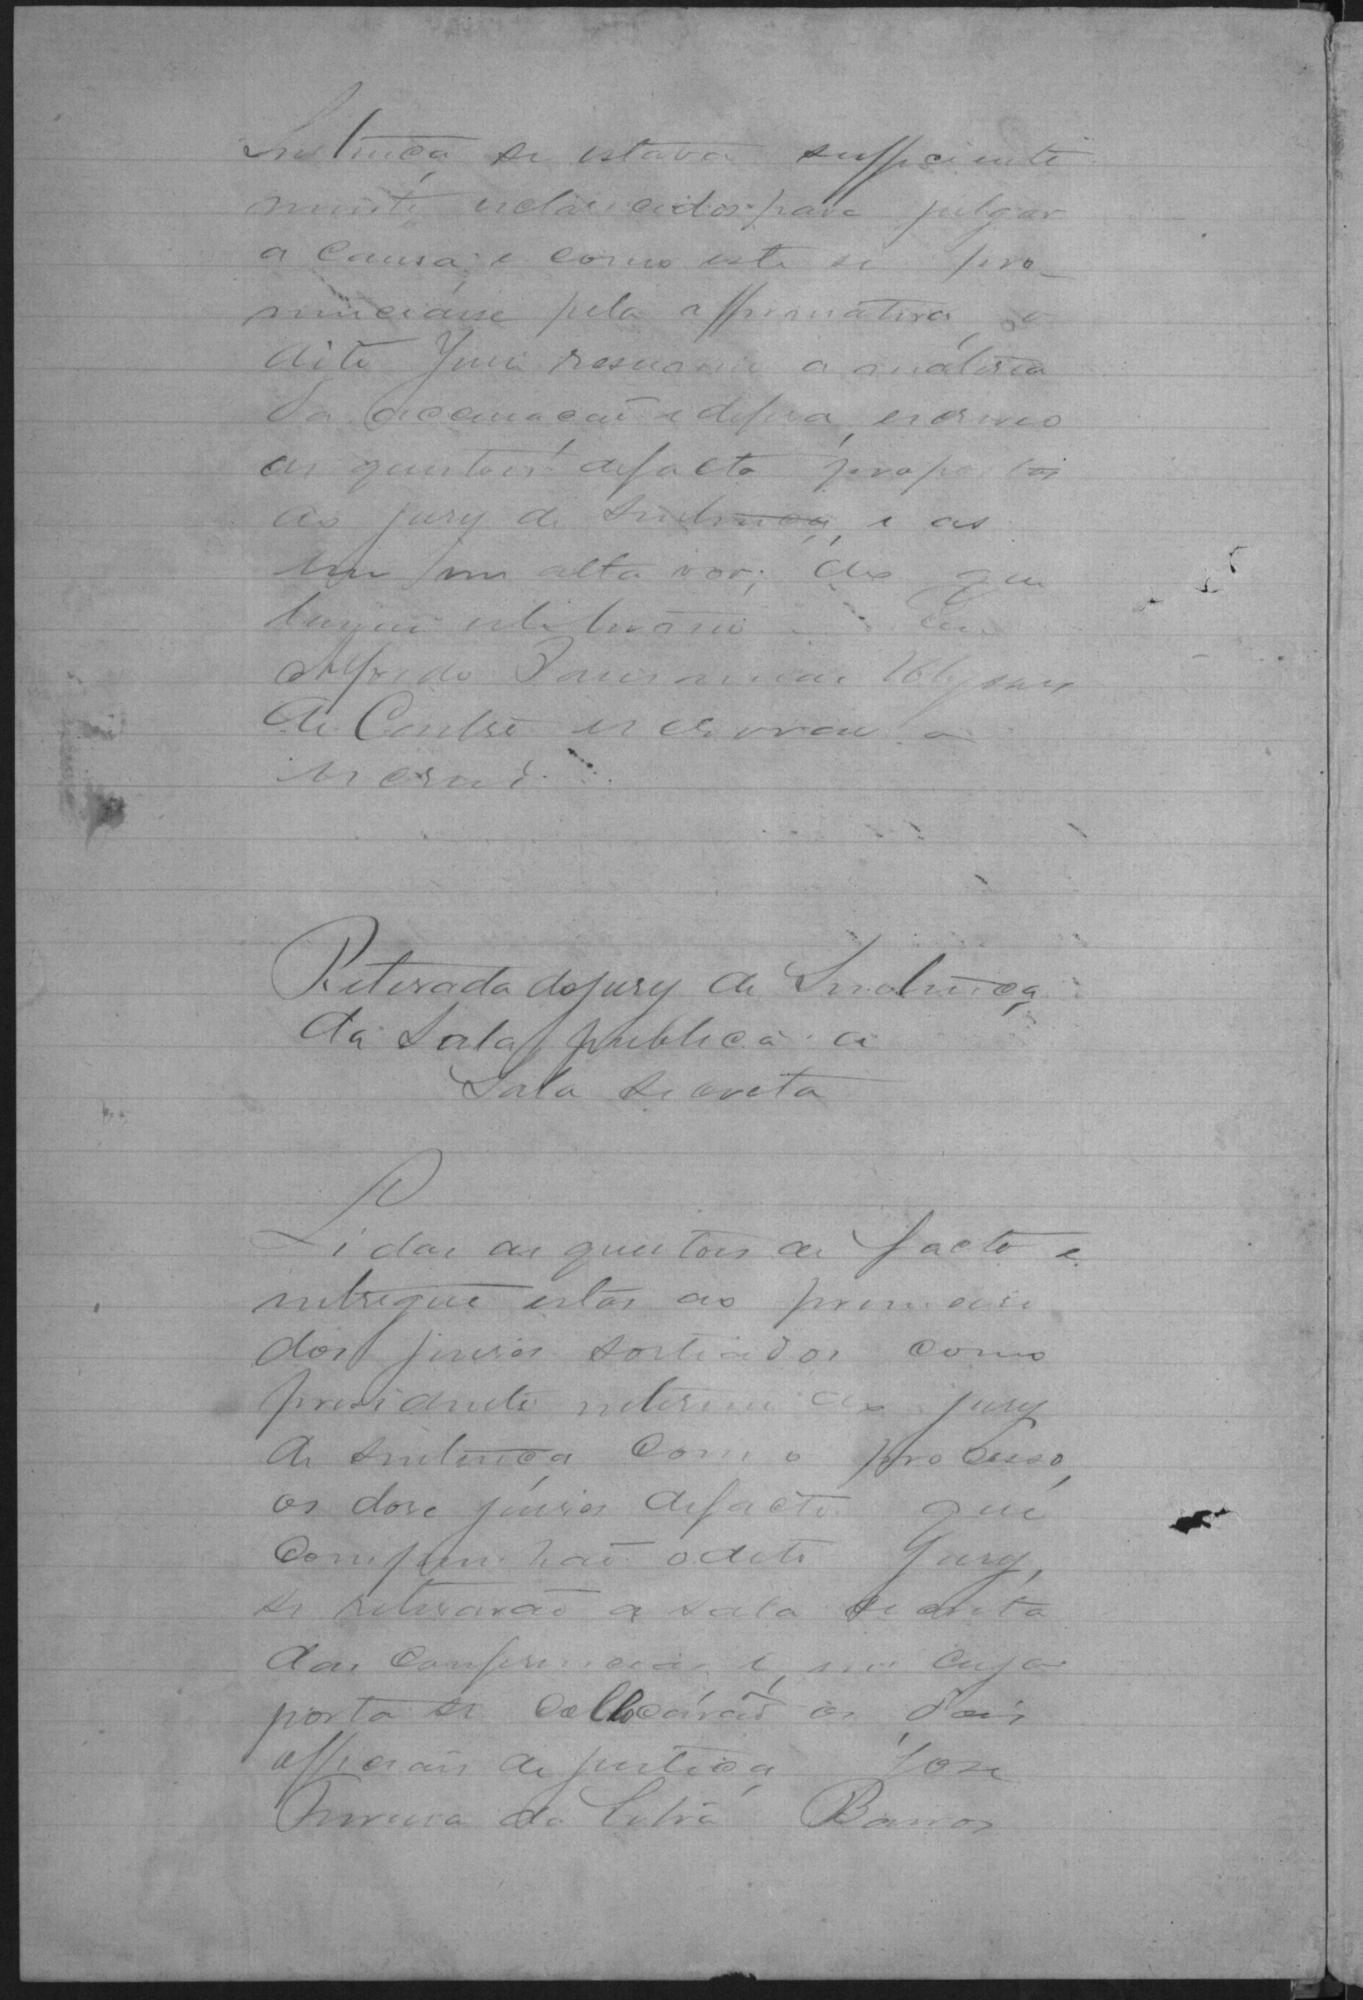 Sentença se estava sufficiente
mente esclarecidos para julgar
a causa; e como este se pro-
nunciasse pela affirmativa, o
dito Juiz resumiu a matéria
da accusação e defesa, escreveo
as questões de facto propostas
ao jury de Sentença, e as
leu em alta voz; do que
lavrei este termo Eu
Alfredo
de Castro escrivão o
escrevi.
Retirada do jury de Sentença
da Sala publica a
Sala Secreta
Lidas as questões de facto e
entregue estas ao primeiro
dos juizes sorteados como
presidente interino do jury
de sentença com o processo,
os dose juizes de facto que
compunhão o dito Jury,
se retirarão a sala secreta
das conferencias e, na cuja
porta se collocárão os dois
officiaes de justiça José
Ferreira da Barros